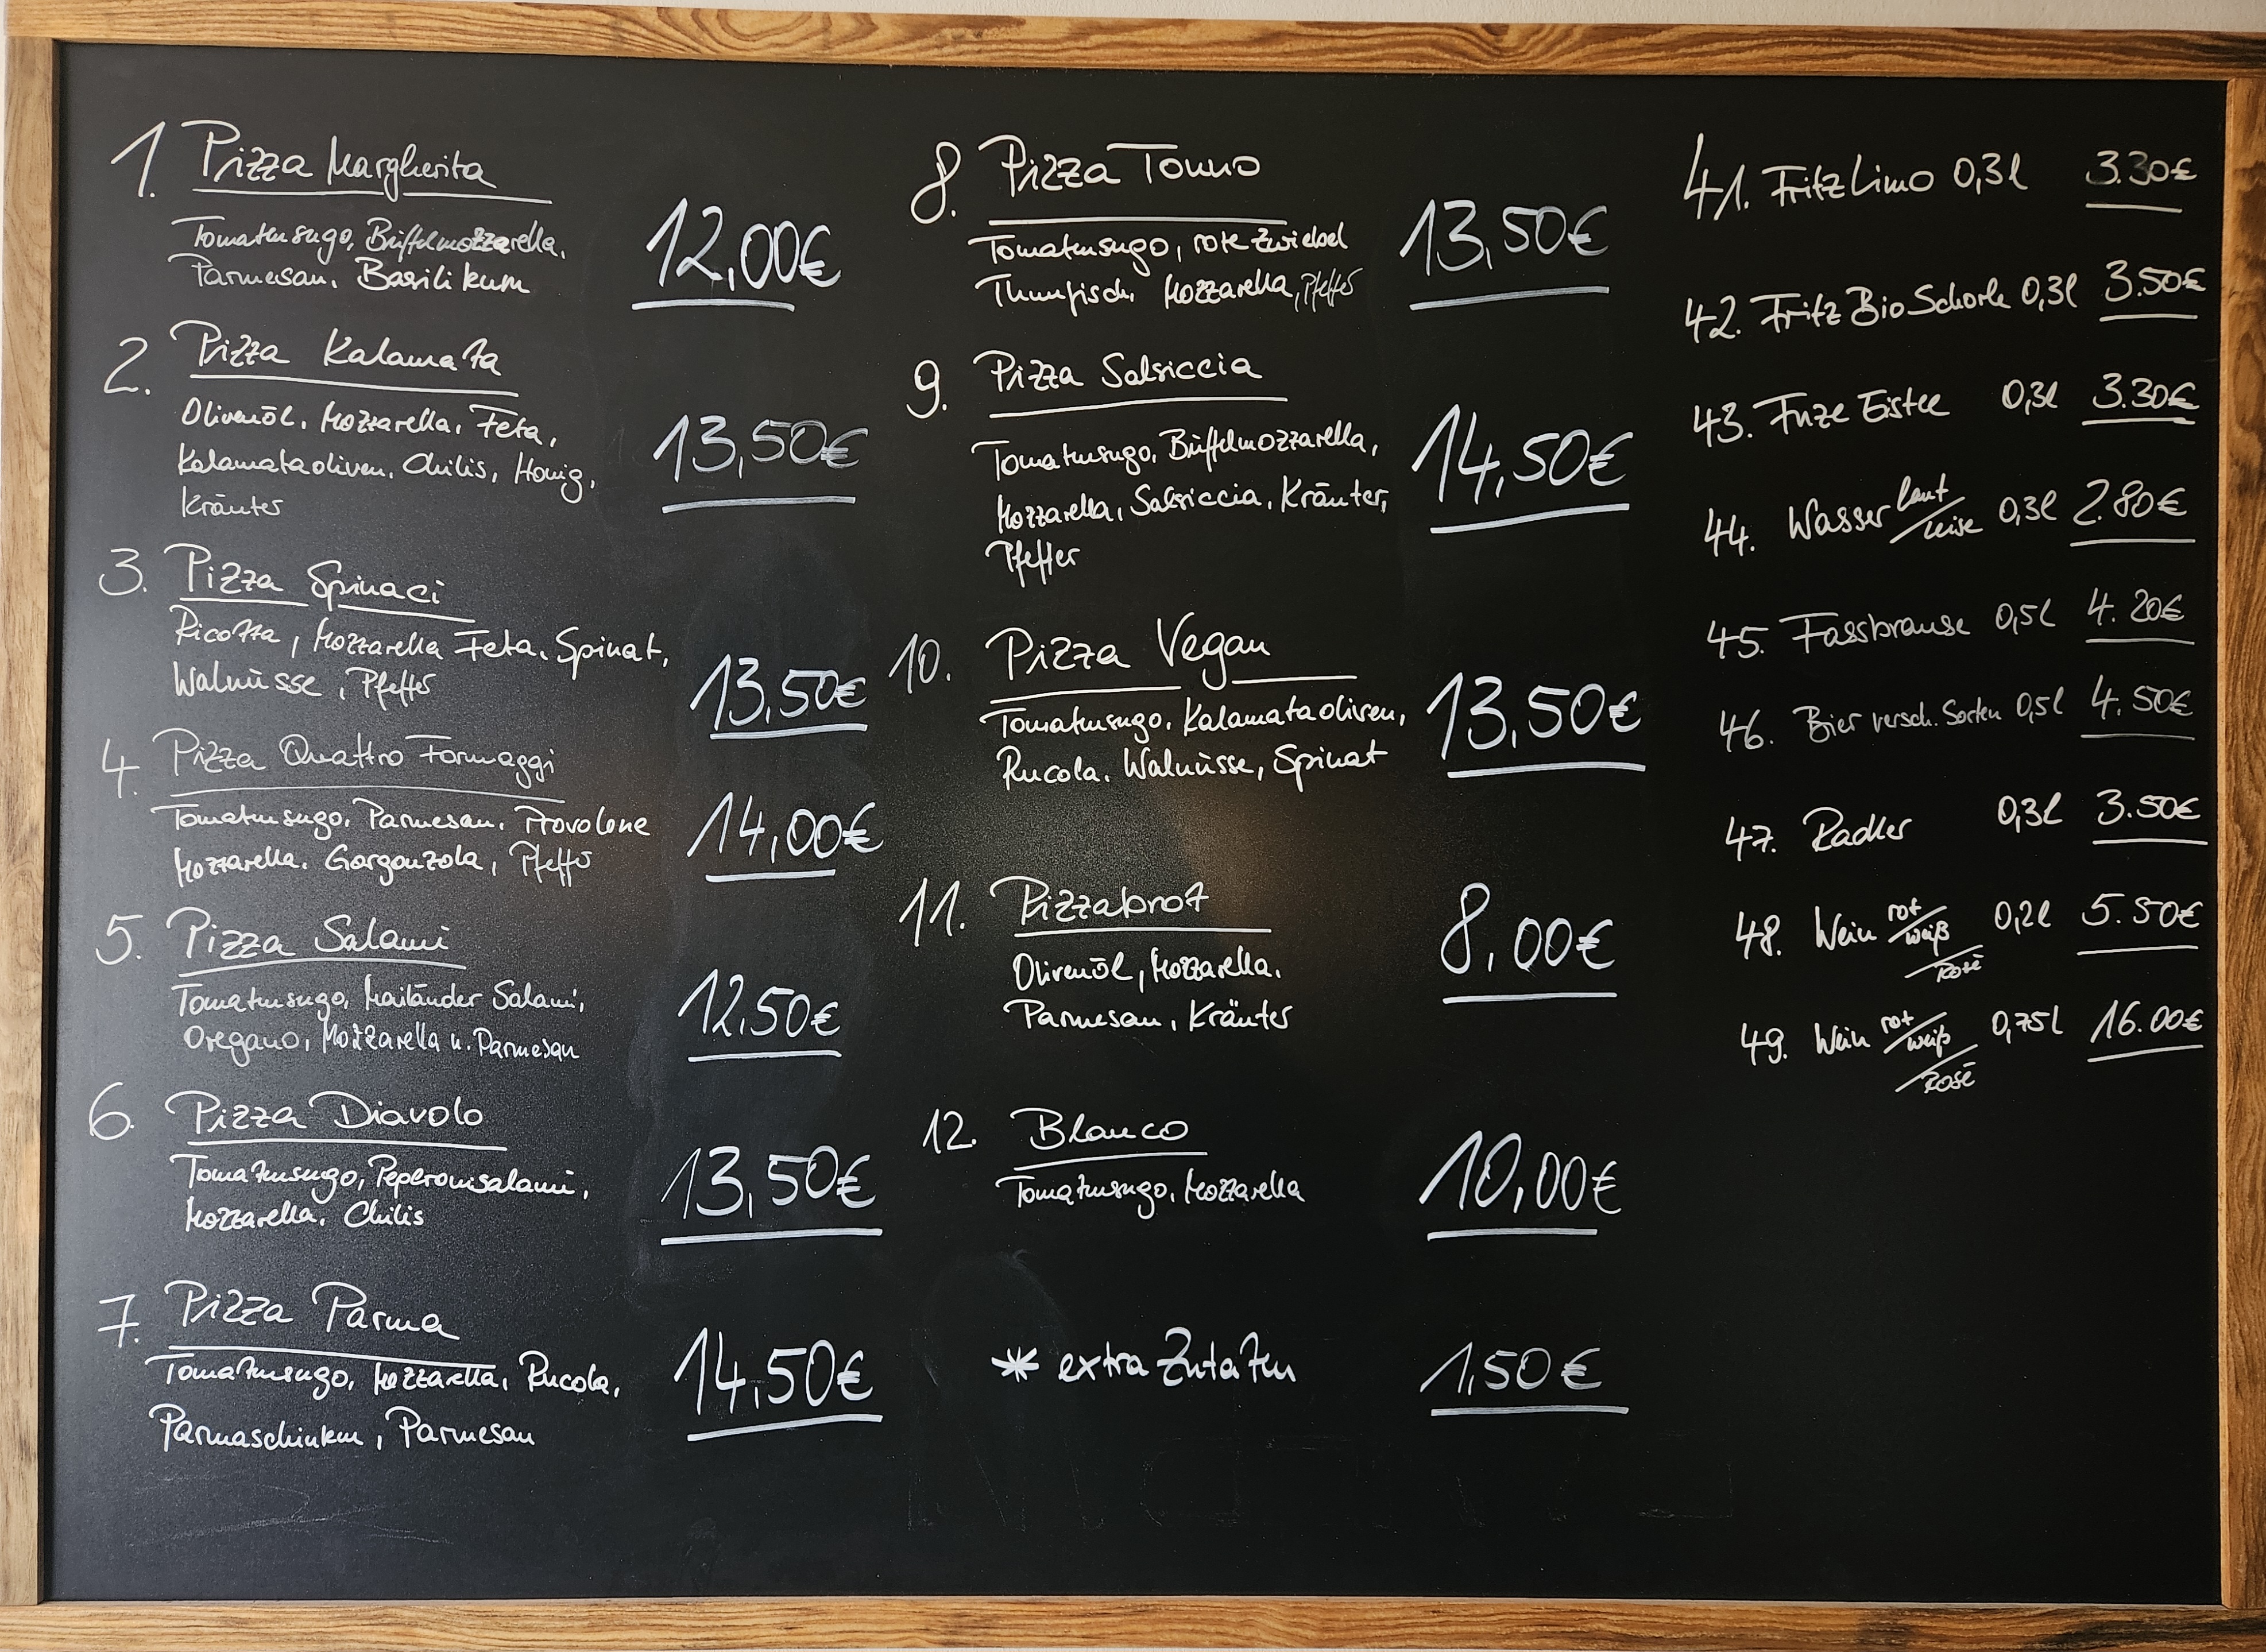 1. Pizza Margherita
Tomatensugo, Büffelmozzarella,
Parmesan, Basilikum
12,00€
2. Pizza Kalamata
Olivenöl, Mozzarella, Feta,
Kalamataoliven, Chilis, Honig,
Kräuter
13,50€
3. Pizza Spinaci
Ricotta, Mozzarella Feta, Spinat,
Walnüsse, Pfeffer
13,50€
4. Pizza Quattro Formaggi
Tomatensugo, Parmesan, Provolone
Mozzarella, Gorgonzola, Pfeffer
14,00€
5. Pizza Salami
Tomatensugo, Mailänder Salami,
Oregano, Mozzarella u. Parmesan
12,50€
6. Pizza Diavolo
Tomatensugo, Peperonisalami,
Mozzarella, Chilis
13,50€
7. Pizza Parma
Tomatensugo, Mozzarella, Rucola,
Parmaschinken, Parmesan
14,50€
8. Pizza Tonno
Tomatensugo, rote Zwiebel
Thunfisch, Mozzarella, Pfeffer
13,50€
9. Pizza Salsiccia
Tomatensugo, Büffelmozzarella,
Mozzarella, Salsiccia, Kräuter,
Pfeffer
14,50€
10. Pizza Vegan
Tomatensugo, Kalamataoliven,
Rucola, Walnüsse, Spinat
13,50€
11. Pizzabrot
Olivenöl, Mozzarella,
Parmesan, Kräuter
8,00€
12. Blanco
Tomatensugo, Mozzarella
10,00€
* extra Zutaten 1,50€
41. Fritz Limo 0,3l 3.30€
42. Fritz Bio Schorle 0,3l 3.50€
43. Fuze Eistee 0,3l 3.30€
44. Wasser laut/leise 0,3l 2.80€
45. Fassbrause 0,5l 4.20€
46. Bier versch. Sorten 0,5l 4.50€
47. Radler 0,3l 3.50€
48. Wein rot/weiß/Rosé 0,2l 5.50€
49. Wein rot/weiß/Rosé 0,75l 16.00€